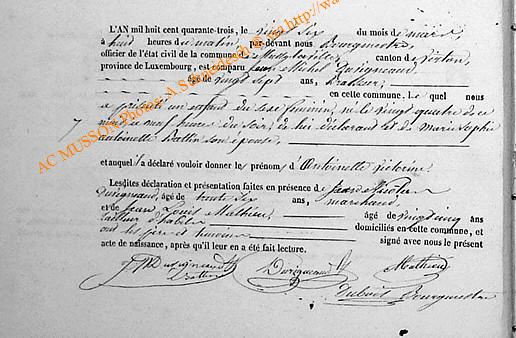 L'AN mil huit cent quarante-trois, le vingt six du mois de
à huit heures du matin, par-devant nous Bourgmestre
officier de l'état civil de la commune de canton de Virton,
province de Luxembourg, est comparu Jean Michel Durigneaud
âgé de vingt sept ans, Brasseur,
en cette commune, Le quel nous
a présenté un enfant du sexe féminin, né le vingt quatre de ce
mois à neuf heures du soir, de lui déclarant et de Marie Sophie
antoinette Battin son épouse,
et auquel il a déclaré vouloir donner le prénom d'Antoinette victorine.
Lesdites déclaration et présentation faites en présence de Jean Nicolas
Durigneaud, âgé de trente six ans, marchand
et de Jean Louis Mathieu, âgé de vingt cinq ans
tailleur d'habits domiciliés en cette commune, et
ont les père et témoins signé avec nous le présent
acte de naissance, après qu'il leur en a été fait lecture.
Durigneaud Mathieu
Battin
Bourgmestre
AC MUSSON Photo: